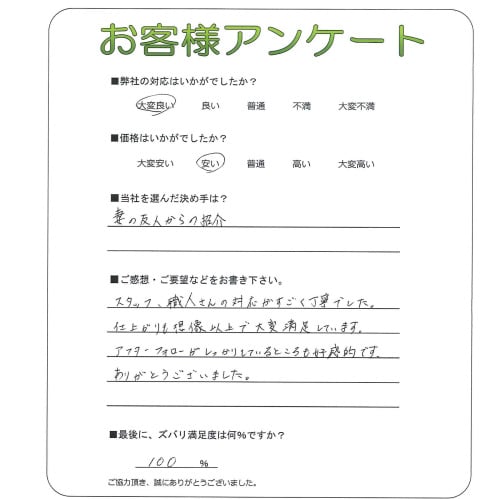 お客様アンケート
■弊社の対応はいかがでしたか？
大変良い 良い 普通 不満 大変不満
■価格はいかがでしたか？
大変安い 安い 普通 高い 大変高い
■当社を選んだ決め手は？
妻の友人からの紹介
■ご感想・ご要望などをお書き下さい。
スタッフ、職人さんの対応がすごく丁寧でした。
仕上がりも想像以上で大変満足しています。
アフターフォローがしっかりしているところも好感的です。
ありがとうございました。
■最後に、ズバリ満足度は何%ですか？
100 %
ご協力頂き、誠にありがとうございました。